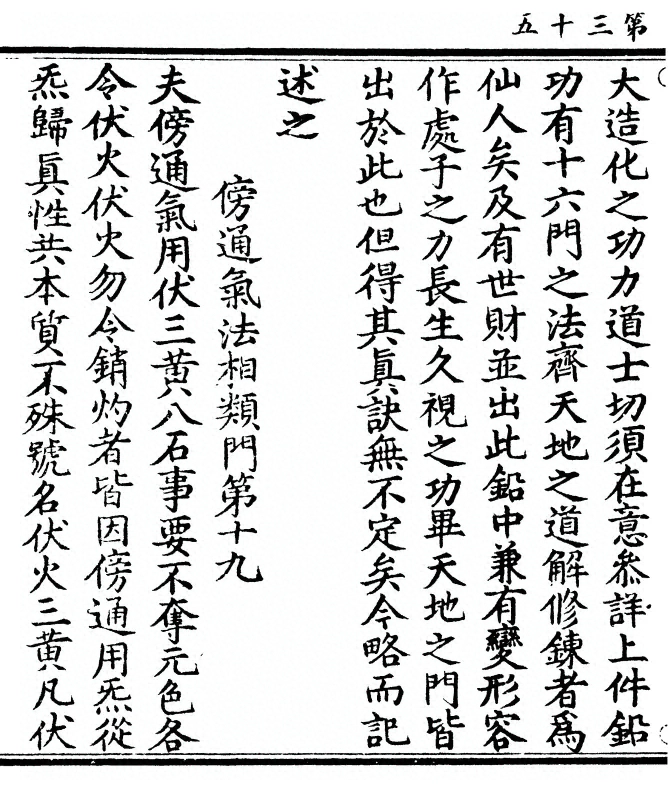 第三十五
大造化之功力道士切須在意叅詳上件鉛
功有十六門之法齊天地之道解修鍊者爲
仙人矣及有世財並出此鉛中兼有變形容
作處子之力長生久視之功畢天地之門皆
出於此也但得其眞訣無不定矣今略而記
述之
傍通氣法相類門第十九
夫傍通氣用伏三黄八石事要不奪元色各
令伏火伏火勿令銷灼者皆因傍通用炁從
炁歸眞性共本質不殊號名伏火三黄凡伏